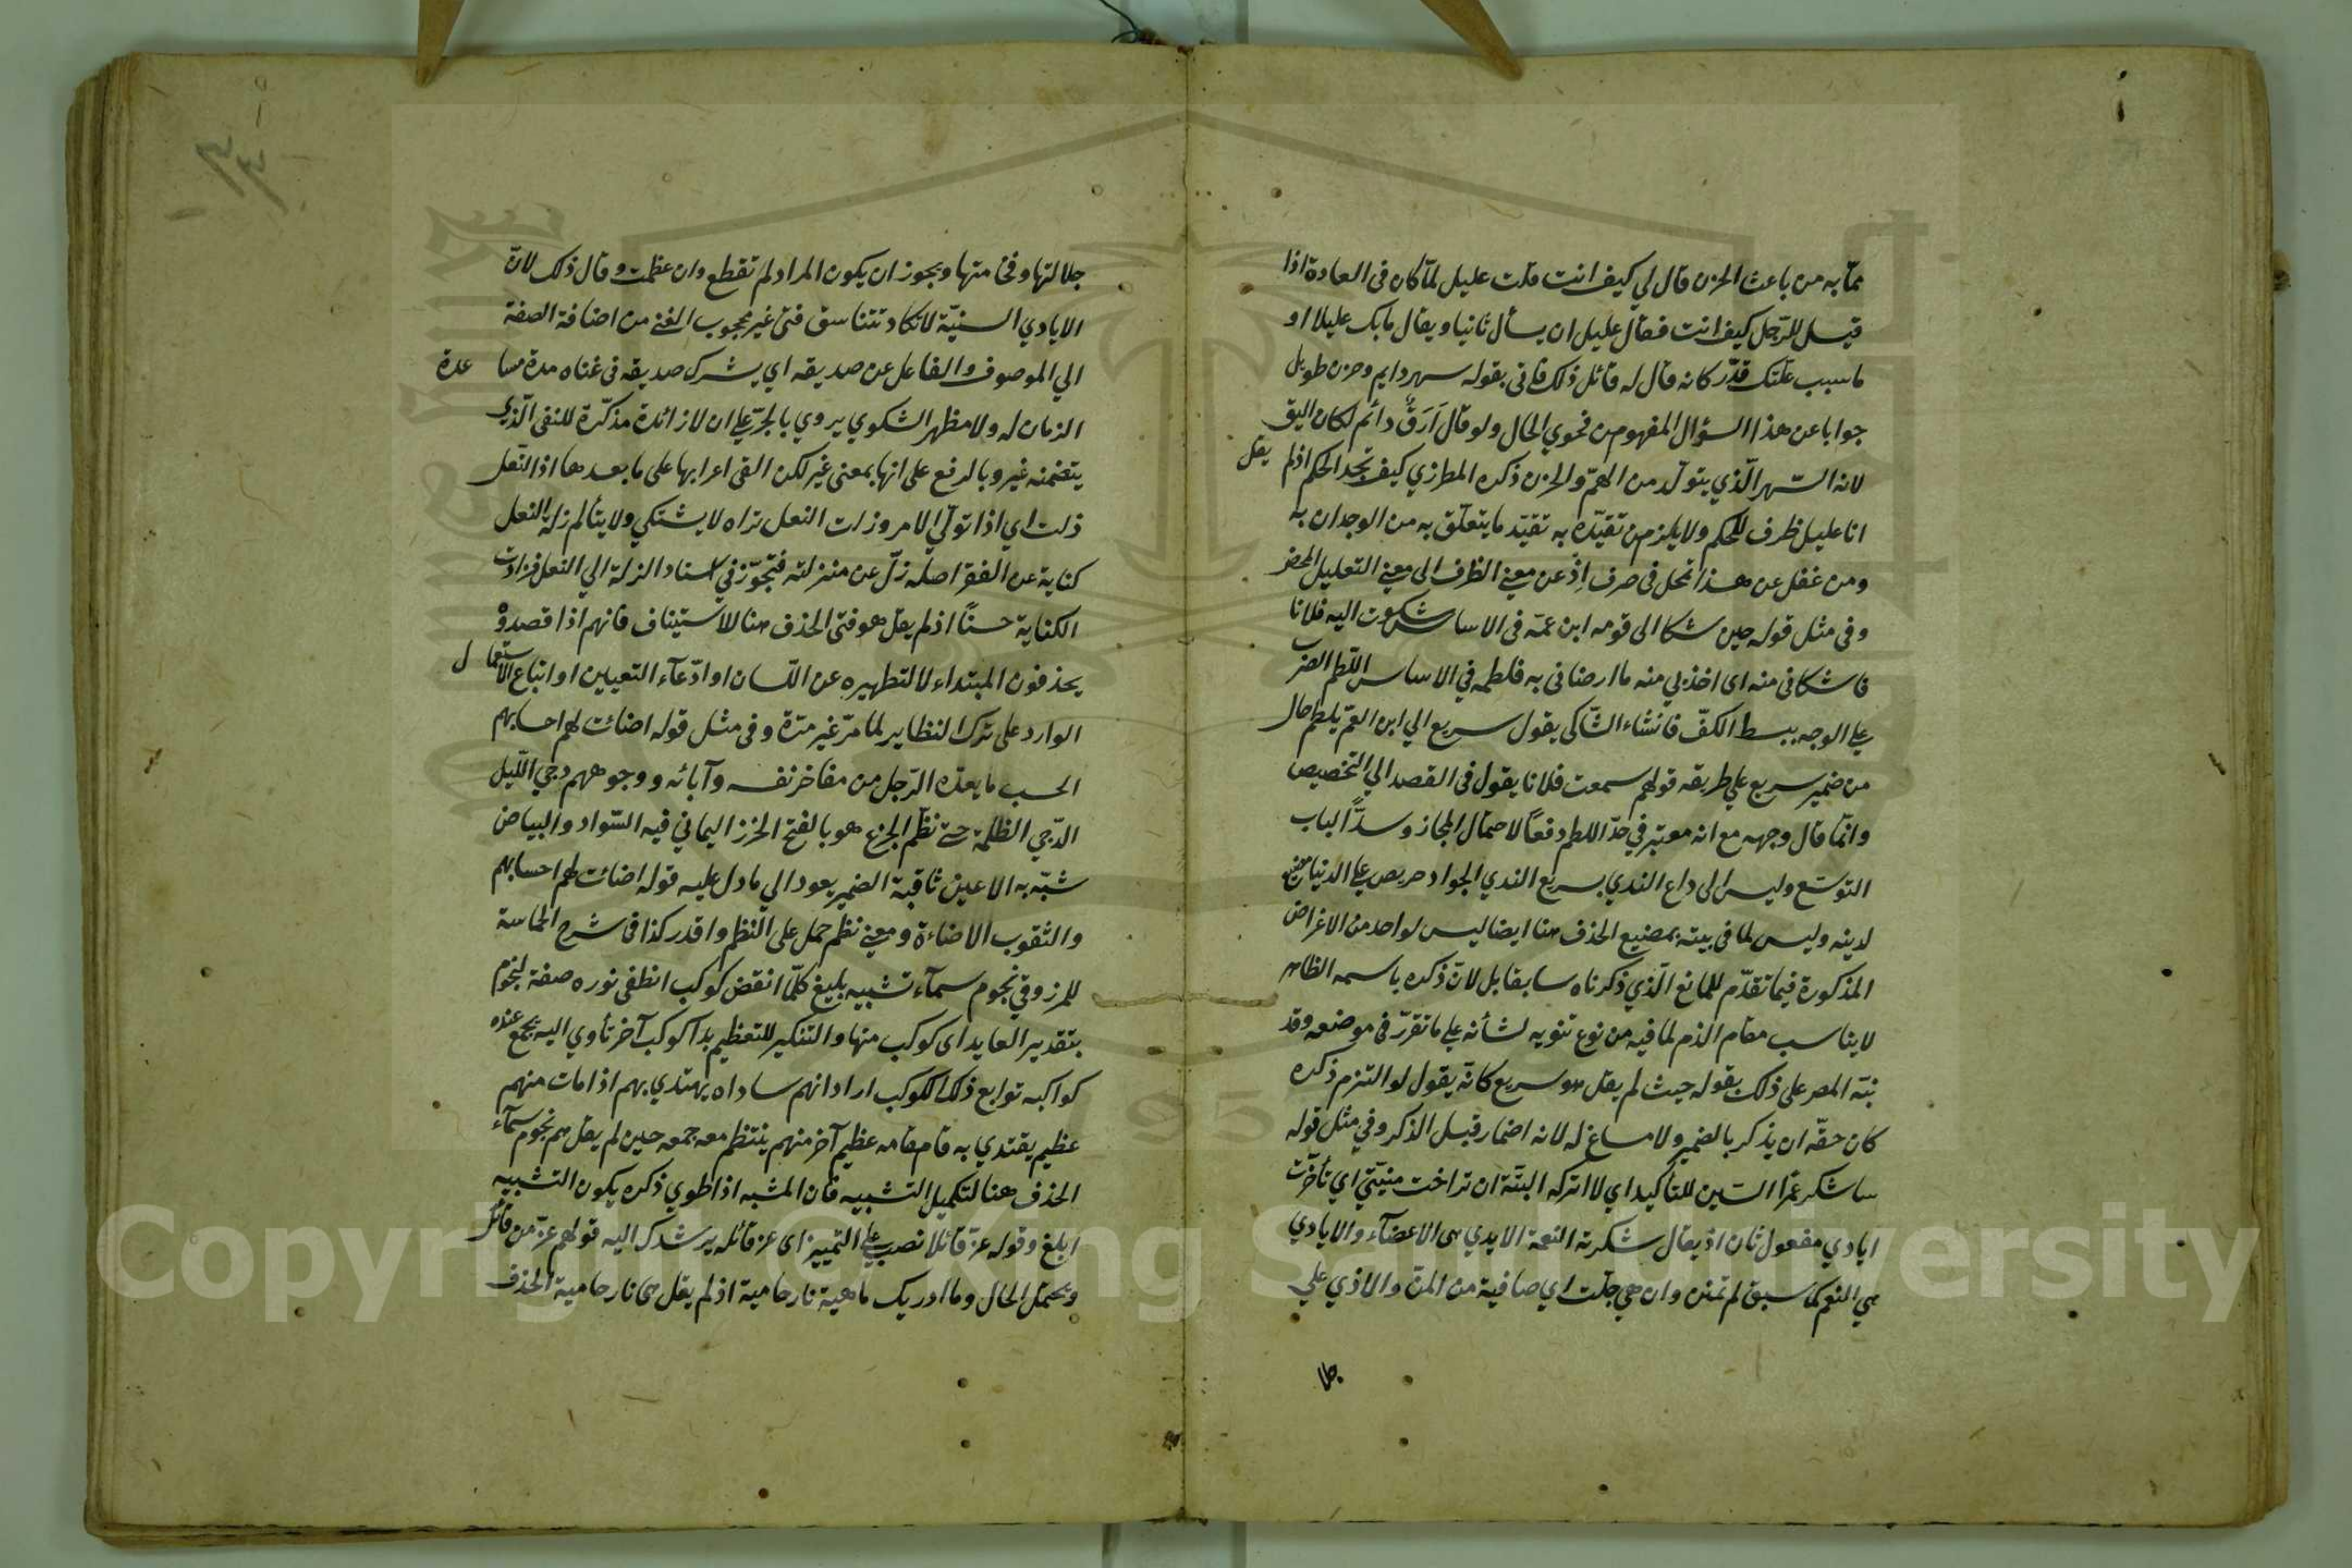 ممّا به من باعث الحزن قال لي كيف انت قلت عليل لمّا كان فى العادة اذا
قيل للرّجل كيف انت فقال عليل ان يسأل ثانيا ويقال ما بك عليلا او
ما سبب علّتك قدّر كانه قال له قائل ذلك فاتى بقوله سهر دايم وحزن طويل
جوابا عن هذا السؤال المفهوم من فحوي الحال ولو قال اَرَقٌ دائم لكان اليق
لانه السّهر الّذي يتولّد من الهمّ والحزن ذكره المطرزي كيف تجد الحكم اذ لم يقل
انا عليل ظرف للحكم ولا يلزم من تقيّده به تقيّد ما يتعلّق به من الوجدان به
ومن غفل عن هذا تمحل فى صرف اِذْ عن معنى الظرف الى معنى التعليل المحض
وفى مثل قوله حين شكا الى قومه ابن عمّه فى الاساس شكوت اليه فلانا
فاشكانى منه اى اخذ لي منه ما ارضانى به فلطمه في الاساس اللّطم الضرب
على الوجه ببسط الكفّ فانشاء الشّاكى يقول سريع الي ابن العمّ يلطم حال
من ضمير سريع علي طريقه قولهم سمعت فلانا يقول فى القصد الي التخصيص
وانّما قال وجهه مع انه معتبر في حدّ اللطم دفعًا لاحتمال المجاز وسدًّا لباب
التوسّع وليس الى داع الندي بسريع الندي الجواد حريص على الدنيا مضيع
لدينه وليس لما فى بيته بمضيع الحذف هنا ايضا ليس لواحد من الاغراض
المذكورة فيما تقدّم للمانع الّذي ذكرناه سابقا بل لانّ ذكره باسمه الظاهر
لا يناسب مقام الذم لما فيه من نوع تنويه لشأنه على ما تقرّر فى موضعه وقد
نبّه المصر على ذلك بقوله حيث لم يقل هو سريع كانّه يقول لو التزم ذكره
كان حقّه ان يذكر بالضمير ولا مساغ له لانه اضمار قبل الذكر وفي مثل قوله
ساشكر عمرًا السّين للتأكيد اي لا اتركه البتّة ان تراخت منيّتي اي تأخّرت
ايادي مفعول ثان اذ يقال شكرته النعمة الايدي هى الاعضآء والايادي
هي النعم كما سبق لم تمنن وان هي جلّت اي صافية من المنّ والاذي علي
جلالتها وفخامتها ويجوز ان يكون المراد لم تقطع وان عظمت وقال ذلك لانّ
الايادي السنيّة لا تكاد تتناسق فتى غير محجوب الغنى من اضافة الصفة
الي الموصوف والفاعل عن صديقه اي يشرك صديقه فى غناه مدة مساعدة
الزمان له ولا مظهر الشكوي يروي بالجرّ على ان لا زائدة مذكّرة للنفى الّذي
يتضمنه غير وبالرفع على انها بمعنى غير لكن القى اعرابها على ما بعدها اذا النّعل
ذلت اي اذا تولّي الامر وزلت النعل تراه لا يشتكي ولا يتألم زلة النعل
كناية عن الفقر اصله زلّ عن منزلته فتجوّز في اسناد الزلة الي النعل فزادت
الكناية حسنًا اذ لم يقل هو فتى الحذف هنا للاستيناف فانهم اذا قصدوْ
يحذفون المبتداء لا لتطهيره عن اللّسان او ادّعآء التعيين او اتباع الاستعمال
الوارد على ترك النظاير لما مرّ غير مرّة وفى مثل قوله اضائت لهم احسابهم
الحسب ما يعدّه الرّجل من مفاخر نفسه وآبائه ووجوههم دجي اللّيل
الدّجي الظلمة حتى نظّم الجزع هو بالفتح الخرز اليماني فيه السّواد والبياض
شبّه به الاعين ثاقبة الضمير يعود الي ما دل عليه قوله اضائت لهم احسابهم
والثقوب الاضاءة ومعنى نظم حمل على النّظم واقدر كذا فى شرح الحماسة
للمرزوقي نجوم سمآء تشبيه بليغ كلّما انقض كوكب انطفى نوره صفة لنجوم
بتقدير العايد اى كوكب منها والتنكير للتعظيم بدا كوكب آخر تأوي اليه تجمع عنده
كواكبه توابع ذلك الكوكب اراد انهم ساداه يهتدي بهم اذا مات منهم
عظيم يقتدي به قام مقامه عظيم آخر منهم ينتظم معه جمعه حين لم يقل هم نجوم سمآء
الحذف هنا لتكميل التشبيه فان المشبه اذا طوي ذكره يكون التشبيه
ابلغ وقوله عزّ قائلا نصب على التمييز اى عز قائله يرشدك اليه قولهم عزّ من قائل
ويحتمل الحال وما ادريك ماهية نار حامية اذ لم يقل هى نار حامية الحذف
Copyright © King Saud University